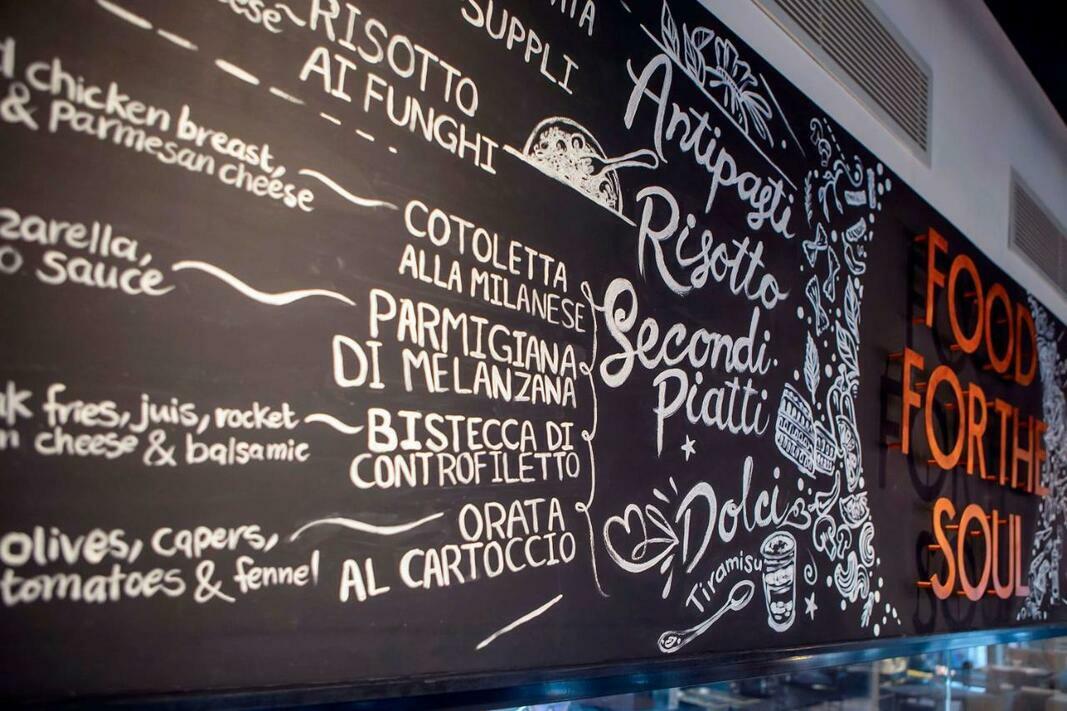 RISOTTO
AI FUNGHI
SUPPLI
chicken breast,
& Parmesan cheese
COTOLETTA
ALLA MILANESE
sauce
PARMIGIANA
DI MELANZANA
fries, juis, rocket
cheese & balsamic
BISTECCA DI
CONTROFILETTO
olives, capers,
tomatoes & fennel
ORATA
AL CARTOCCIO
Antipasti
Risotto
Secondi
Piatti
Dolci
Tiramisu
FOOD
FOR THE
SOUL